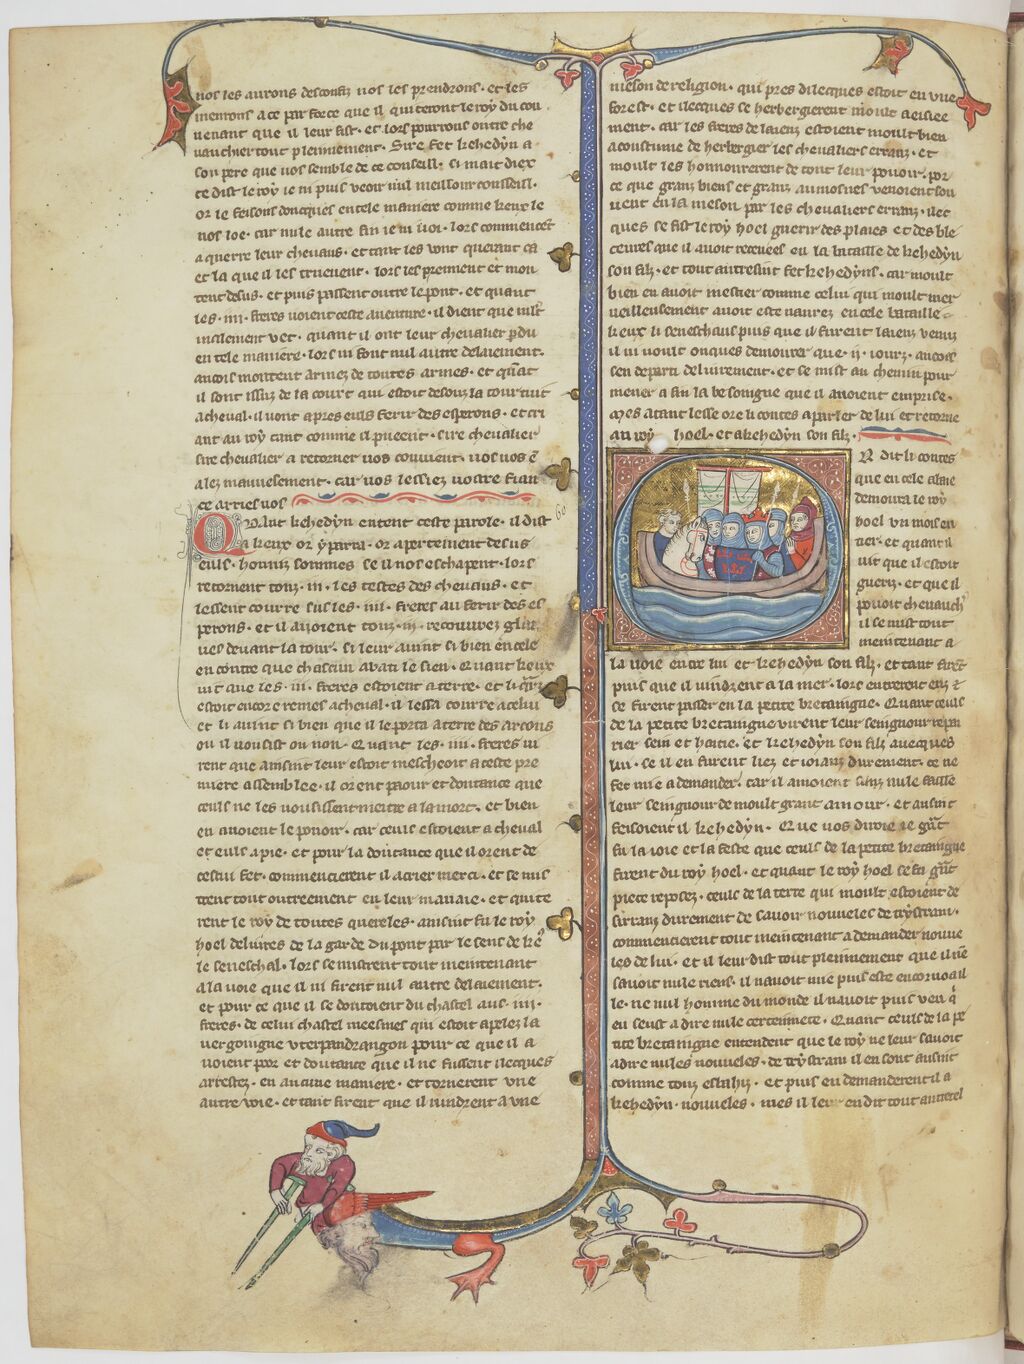 nos les aurons desconfiz nos les prendrons. et les
menrons a ce par force que il quiteront le roy du cou
uenant que il leur fist. et lors pourrons outre che
uauchier tout plenniement. Sire fet kehedyn a
son pere que uos semble de ce conseill. si mait diex
ce dist le roy ie ni puis veoir nul meillour conseill.
or le feisons doncques en tele maniere comme keux le
nos loe. car nule autre fin ie ni uoi. lors commencent
a querre leur cheuaus. et tant les vont querant ca
et la que il les trueuent. lors les prennent et mon
tent desus. et puis passent outre le pont. et quant
les .iiii. freres uoient ceste auenture. il dient que
malement vet. quant il ont leur cheualier perdu
en tele maniere. lors ni font nul autre delaiement.
ancois montent armez de toutes armes. et quant
il sont issuz de la court qui estoit desouz la tour tuit
a cheual. il uont apres euls ferir des esperons. et cri
ant au roy tant comme il pueent. sire cheualier
sire cheualier a retorner uos conuient. uos uos en
alez mauuesement. car uos lessiez uostre fian
ce arrieres uos
Quant kehedyn entent ceste parole. il dist
a keux or y parra. or apertement desus
euls. honniz sommes se il nos eschapent. lors
retornent touz .iii. les testes des cheuaus. et
lessent courre sus les .iiii. freres au ferir des es
perons. et il auoient touz .iii. recouurez glai
ues deuant la tour. si leur auint si bien en cele
encontre que chascun abati le sien. Quant keux
uit que les .iii. freres estoient a terre. et li quarz
estoit encore remes a cheual. il lessa courre a celui
et li auint si bien que il le porta a terre des arcons
ou il uousist ou non. Quant les .iiii. freres ui
rent que ainsint leur estoit mescheoit a ceste pre
miere assemblee. il orent paour et doutance que
ceuls ne les uousissent metre a la mort. et bien
en auoient le pouoir. car ceuls estoient a cheual
et euls a pie. et pour la doutance que il orent de
cestui fet. commencierent il a crier merci. et se mis
trent tout outreement en leur manaie. et quite
rent le roy de toutes quereles. ainsint fu le roy
hoel deliures de la garde du pont par le sens de ke
le seneschal. lors se mistrent tout meintenant
a la uoie que il ni firent nul autre delaiement.
et pour ce que il se doutoient du chastel aus .iiii.
freres. de celui chastel meesmes qui estoit apelez la
vergoigne vterpandragon pour ce que il a
uoient poor et doutance que il ne fussent ilecques
arrestez. en aucune maniere. et tornerent vne
autre voie. et tant firent que il uindrent a vne
meson de religion. qui pres dilecques estoit en vne
forest. et ilecques se herbergierent moult aeisiee
ment. car les freres de laienz estoient moult bien
acoustume de herbergier les cheualiers erranz. et
moult les honnourerent de tout leur pouoir. por
ce que granz biens et granz aumosnes venoient sou
uent en la meson par les cheualiers erranz. ilec
ques se fist le roy hoel guerir des plaies et des ble
ceures que il auoit receues en la bataille de kehedyn
son filz. et tout autresint fet kehedyns. car moult
bien en auoit mestier comme celui qui moult mer
ueilleusement auoit este naurez en cele bataille
keux li seneschaus puis que il furent laienz venuz
il ni uoult onques demourer que .ii. iourz. ancois
sen departi deliurement. et se mist au chemin pour
mener a fin la besoingne que il auoient emprise.
Mes atant lesse ore li contes a parler de lui et retorne
au roy hoel. et a kehedyn son filz.
Or dit li contes
que en cele abaie
demoura le roy
hoel vn mois en
tier. et quant il
vit que il estoit
gueriz. et que il
pouoit cheuauchier
il se mist tout
meintenant a
la uoie entre lui et kehedyn son filz. et tant firent
puis que il uindrent a la mer. lors entrerent enz et
se firent passer en la petite bretaingne. Quant ceuls
de la petite bretaingne virent leur seingnour repai
rier sein et haitie. et kehedyn son filz auecques
lui. se il en furent liez et ioianz durement. ce ne
fet mie a demander. car il amoient sanz nule faille
leur seingnour de moult grant amour. et ausint
fesoient il kehedyn. Que uos diroie ie grant
fu la ioie et la feste que ceuls de la petite bretaingne
firent du roy hoel. et quant le roy hoel se fu grant
piece reposez. ceuls de la terre qui moult estoient de
sirranz durement de sauoir nouueles de trystram.
commencierent tout meintenant a demander nouue
les de lui. et il leur dist tout plenniement que il nen
sauoit nule riens. il nauoit mie puis este en cornoail
le. ne nul homme du monde il nauoit puis veu qui
en seust a dire nule certeinnete. Quant ceuls de la pe
tite bretaingne entendent que le roy ne leur sauoit
a dire nules nouueles. de trystram il en sont ausint
comme touz esbahiz. et puis en demanderent il a
kehedyn nouueles. mes il leur en dit tout autretel